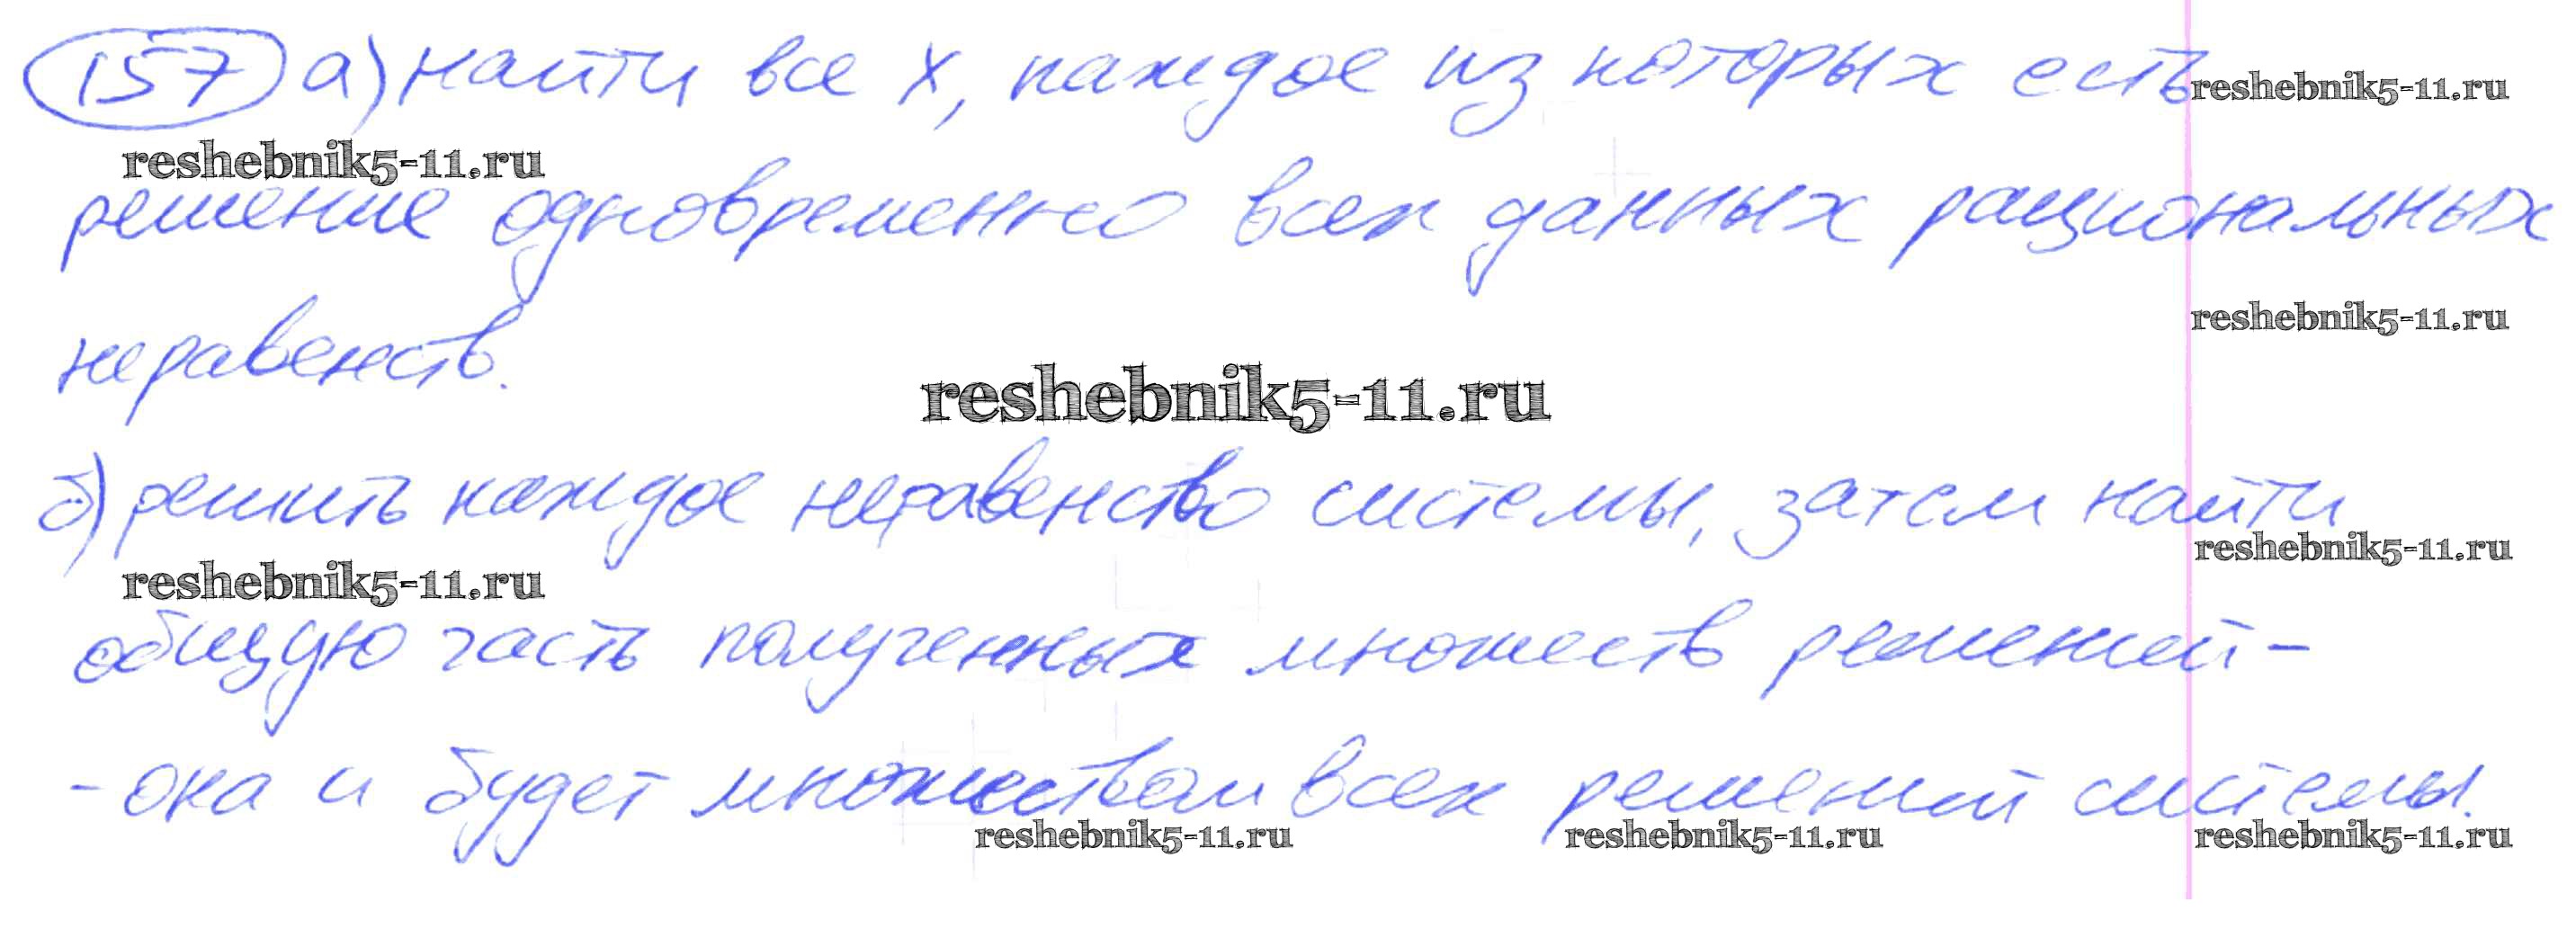 157 а) найти все x, каждое из которых есть
reshebnik5-11.ru
reshebnik5-11.ru
решение одновременно всех данных рациональных
reshebnik5-11.ru
неравенств.
reshebnik5-11.ru
б) решить каждое неравенство системы, затем найти
reshebnik5-11.ru
reshebnik5-11.ru
общую часть полученных множеств решений -
- она и будет множеством всех решений системы.
reshebnik5-11.ru
reshebnik5-11.ru
reshebnik5-11.ru